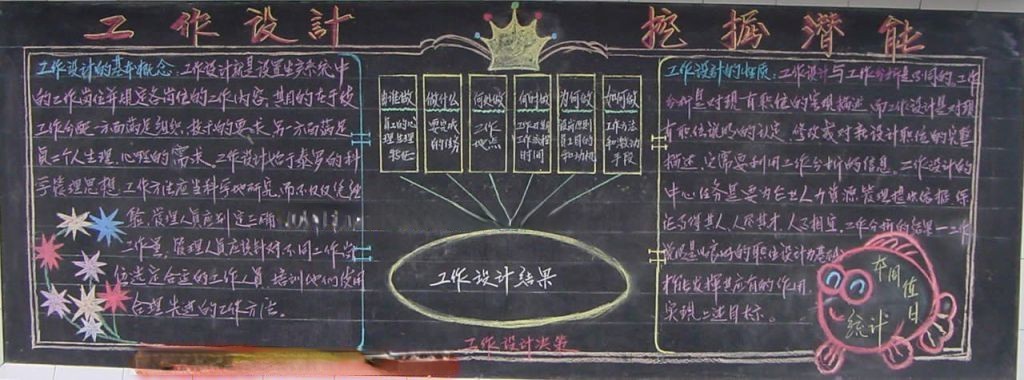 工作设计 挖掘潜能
工作设计的基本概念：工作设计就是设置生产系统中
的工作岗位并规定各岗位的工作内容，其目的在于使
工作分配一方面满足组织、技术的要求，另一方面满足
员工个人生理、心理的需求。工作设计始于泰罗的科
学管理思想，工作方法应当科学地研究，而不仅仅凭经
验，管理人员应制定正确
工作差，管理人员应该针对不同工作岗
位选定合适的工作人员，培训他们使用
合理先进的工作方法。
由谁做
员工的心
理生理
特征
做什么
要完成
的任务
何处做
工作
地点
何时做
工作日期
工作流程
时间
为何做
组织原则
员工目的
和动机
如何做
工作方法
和激励
手段
工作设计结果
工作设计决策
工作设计的性质：工作设计与工作分析是不同的，工作
分析是对现有职位的客观描述，而工作设计是对现
有职位说明的认定、修改或对新设计职位的完整
描述，它需要利用工作分析的信息。工作设计的
中心任务是要为企业人力资源管理提供依据，保
证事得其人，人尽其才，人事相宜。工作分析的结果—工作
说明是以良好的职位设计为基础
才能发挥其应有的作用，
实现上述目标。
本间值日
统计